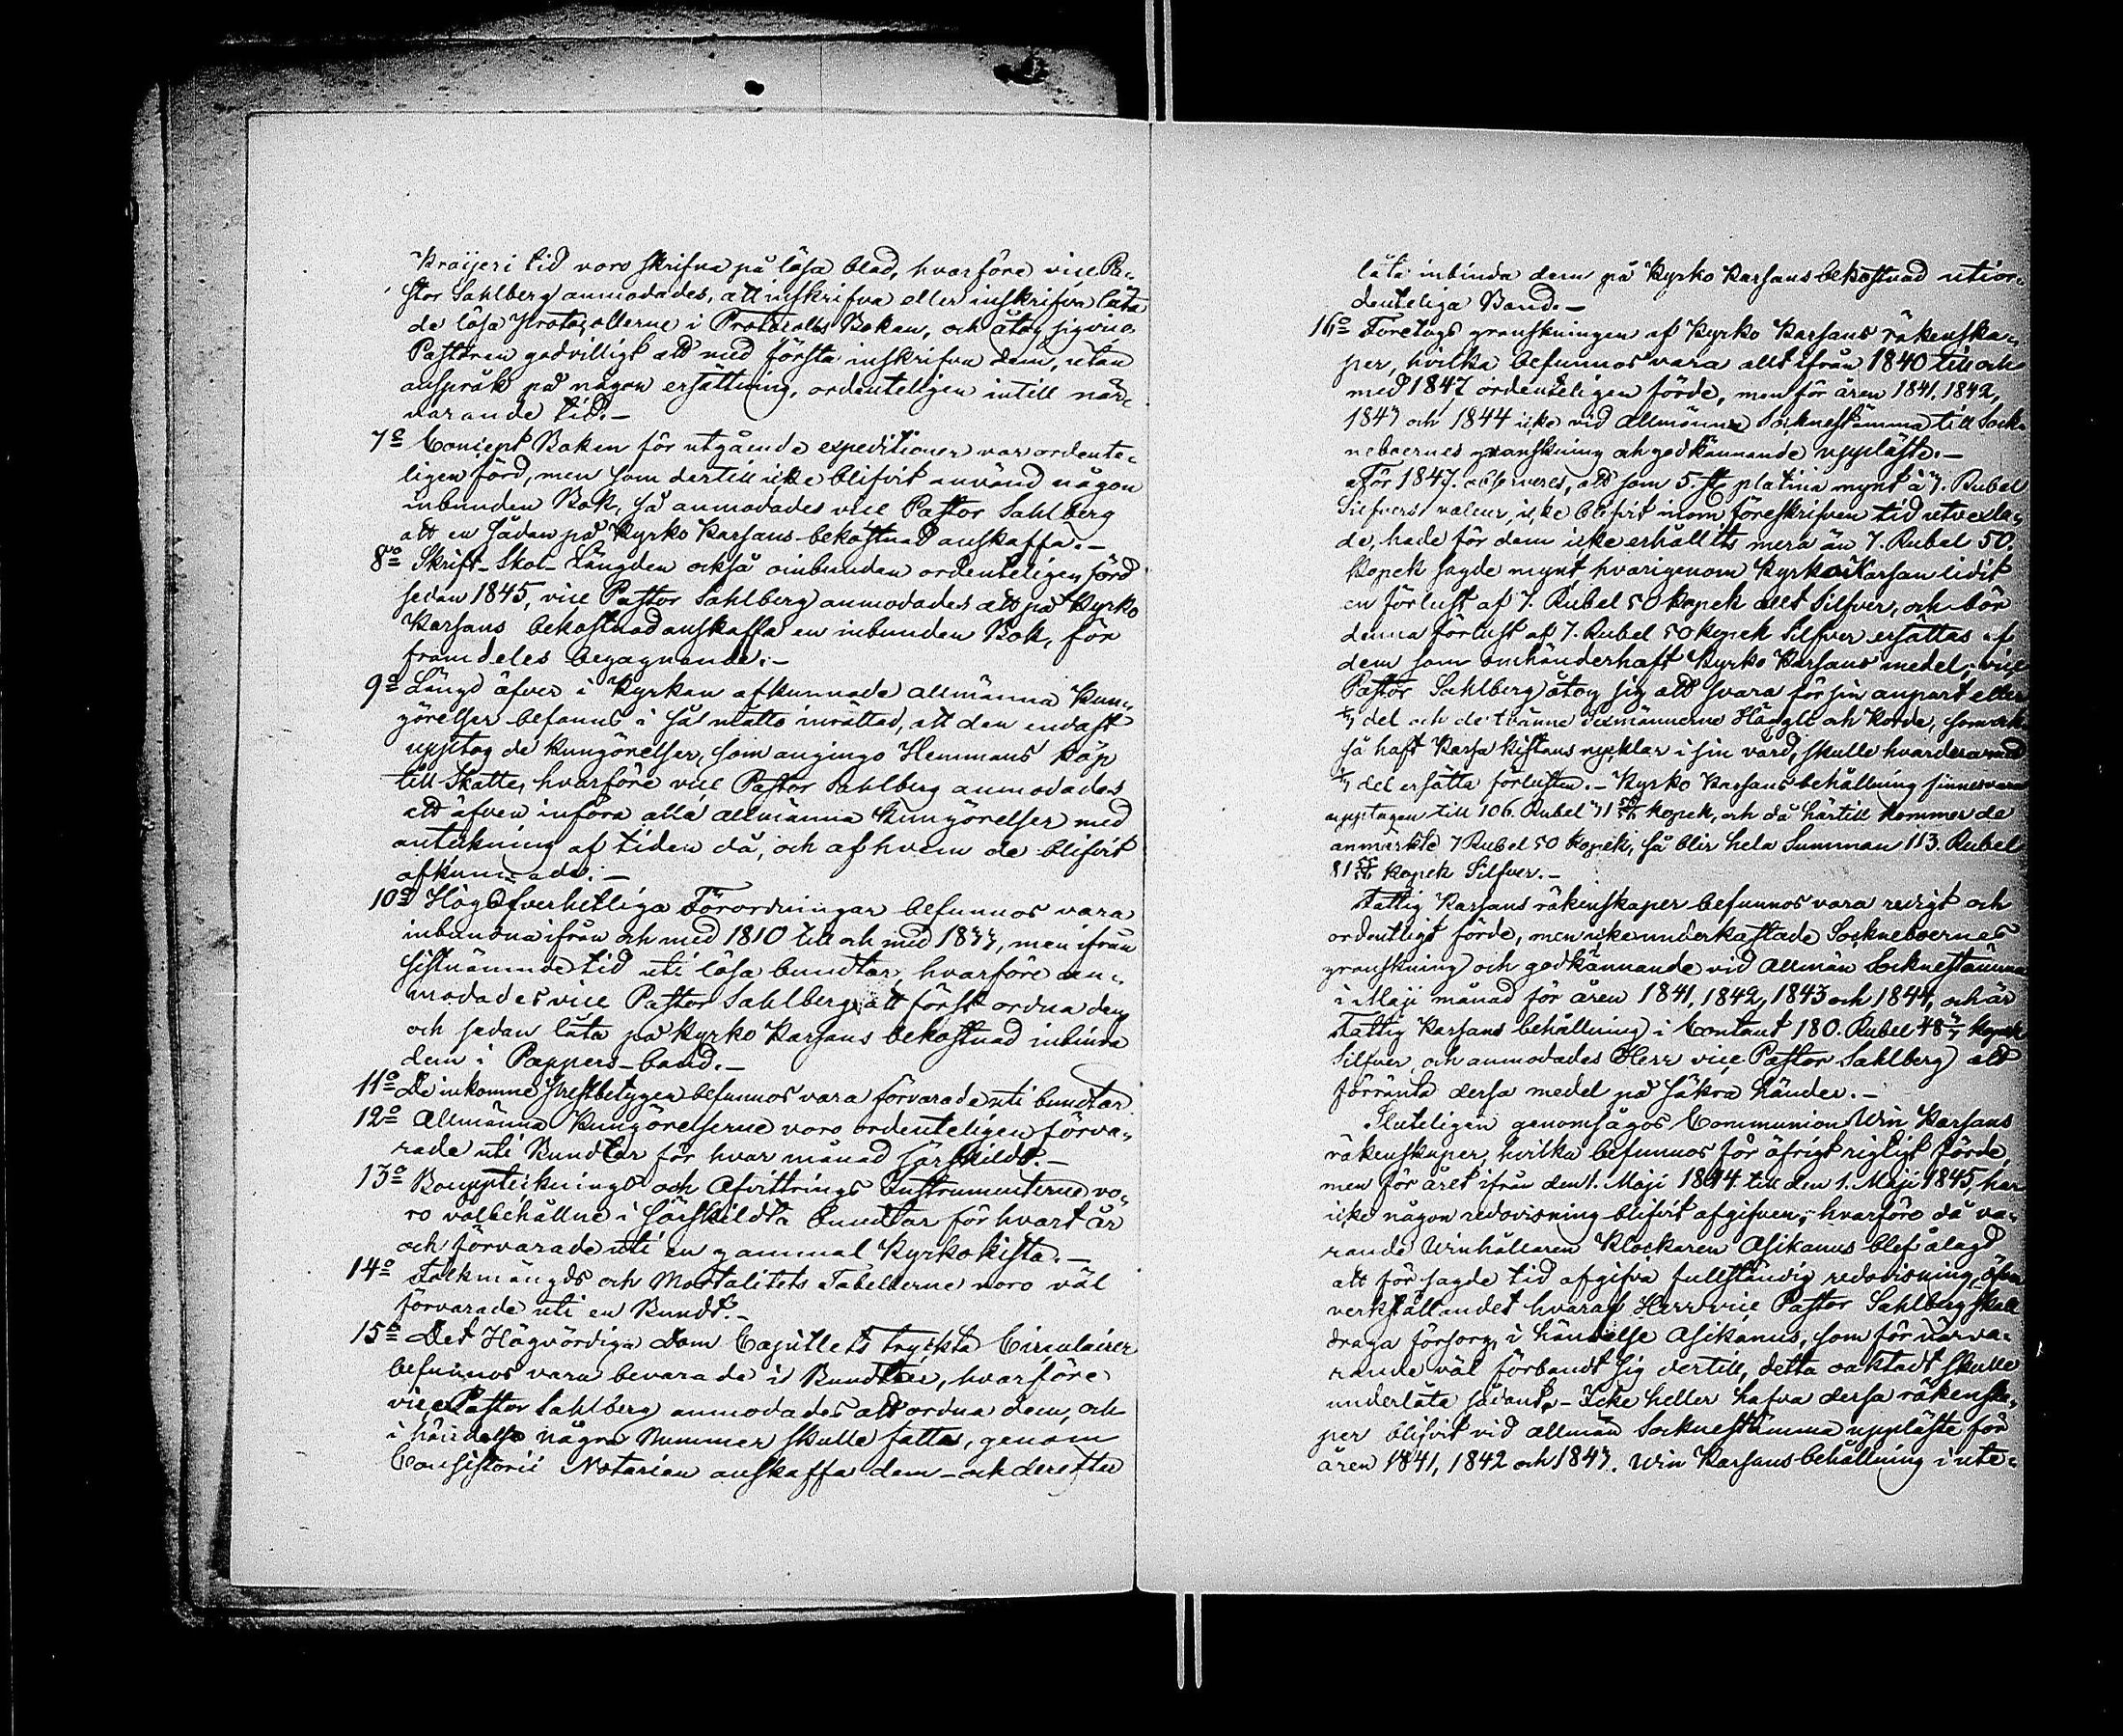 Kraijeri tid voro skrifna på lösa blad, hvarföre vice Pa-
stor Sahlberg anmodades, att inskrifva eller inskrifva låta
de lösa Protocollerne i Protocolls Boken, och åtog sig vice
Pastoren godvilligt att med första inskrifva dem, utan
anspråk på någon ersättning, ordenteligen intill när-
varande tid.-
7o Concept Boken för utgående expeditioner var ordente-
ligen förd, men som dertill icke blifvit använd någon
inbunden Bok, så anmodades vice Pastor Sahlberg
att en sådan på Kyrko Kassans bekostnad anskaffa.-
8vo Skrift-Skol-Längden också oinbunden ordenteligen förd
sedan 1845, vice Pastor Sahlberg anmodades att på Kyrko
Kassans bekostnad anskaffa en inbunden Bok, för
framdeles begagnande.-
9o Längd öfver i Kyrkan afkunnade allmänna Kun-
görelser befanns i så måtto inrättad, att den endast
upptog de kungörelser, som angingo Hemmans köp
till Skatte, hvarföre vice Pastor Sahlberg anmodades
att äfven införa alla allmänna Kungörelser med
antekning af tiden då, och af hvem de blifvit
afkunnade.-
10o Högöfverhetliga Förordningar befunnos vara
inbundna ifrån och med 1810 till och med 1833, men ifrån
sistnämnde tid uti lösa bundtar, hvarföre an-
modades vice Pastor Sahlberg att först ordna dem
och sedan låta på Kyrko Kassans bekostnad inbinda
dem i Pappers-band.-
11o De inkomne Prestbetygen befunnos vara förvarade uti bundtar
12o Allmänna Kungörelserne voro ordenteligen förva-
rade uti Bundtar för hvar månad särskildt.-
13o Bouppteknings och Afvittrings Instrumenterne vo-
ro välbehållne i särskildta bundtar för hvart år
och förvarade uti en gammal Kyrkokista.-
14o Folkmängds och Mortalitets Tabellerne voro väl
förvarade uti en Bundt.-
15o Det Högvördiga Dom Capitlets tryckta Circulairer
befunnos vara bevarade i Bundtar, hvarföre
vice Pastor Sahlberg anmodades att ordna dem, och
i händelse några Nummer skulle fattas, genom
Consistorii Notarien anskaffa dem - och derefter
låta inbinda dem på Kyrko Kassans bekostnad uti or-
denteliga Band.-
16o Företogs granskningen af Kyrko Kassans räkenska-
per, hvilka befunnos vara allt ifrån 1840 till och
med 1847 ordenteligen förde, men för åren 1841, 1842,
1843 och 1844 icke vid allmänna Socknestämma till Sock-
neboernes granskning och godkännande uppläste.-
För 1847. observeres, att som 5. st platina mynt à 3. Rubel
Silfvers valeur, icke blifvit inom föreskrifven tid utvexla-
de, hade för dem icke erhållits mera än 7. Rubel 50.
Kopek sagde mynt, hvarigenom Kyrko Kassan lidit
en förlust af 7. Rubel 50 kopek allt Silfver, och bör
denna förlust af 7. Rubel 50 kopek Silfver ersättas af
dem som omhänderhaft Kyrko Kassans medel, vice
Pastor Sahlberg åtog sig att svara för sin anpart eller
1/3 del och de tvänne Sexmännerne Hängli och Korde, som ock-
så haft Kassa Kistans nycklar i sin vård, skulle hvardera med
1/3 del ersätta förlusten.- Kyrko Kassans behållning finnes vara
upptagen till 106. Rubel 31 kopek, och då härtill kommer de
anmärkte 7 Rubel 50 kopek, så blir hela Summan 113. Rubel
81 kopek Silfver.-
Fattig Kassans räkenskaper befunnos vara redigt och
ordentligt förde, men icke underkastade Sockneboernes
granskning och godkännande vid allmän Socknestämma
i Maji månad för åren 1841, 1842, 1843 och 1844, och är
Fattig Kassans behållning i Contant 180. Rubel 48 kopek
Silfver, och anmodades Herr vice Pastor Sahlberg att
förränta dessa medel på säkra händer.-
Sluteligen genomsågos Communion Win Kassans
räkenskaper, hvilka befunnos för öfrigt rigtigt förde,
men för året ifrån den 1. Maji 1844. till den 1. Maji 1845, har
icke någon redovisning blifvit afgifven; hvarföre då va-
rande Winhållaren Klockaren Asikanus blef ålagd
att för sagde tid afgifva fullständig redovisning, öfver
verkställandet hvaraf Herr vice Pastor Sahlberg skall
draga försorg, i händelse Asikanus, som för närva-
rande väl förbandt sig dertill, detta oaktadt skulle
underlåta sådant.- Icke heller hafva dessa räkenska-
per blifvit vid allmän Socknestämma uppläste för
åren 1841, 1842 och 1843. Win Kassans behållning i ute-